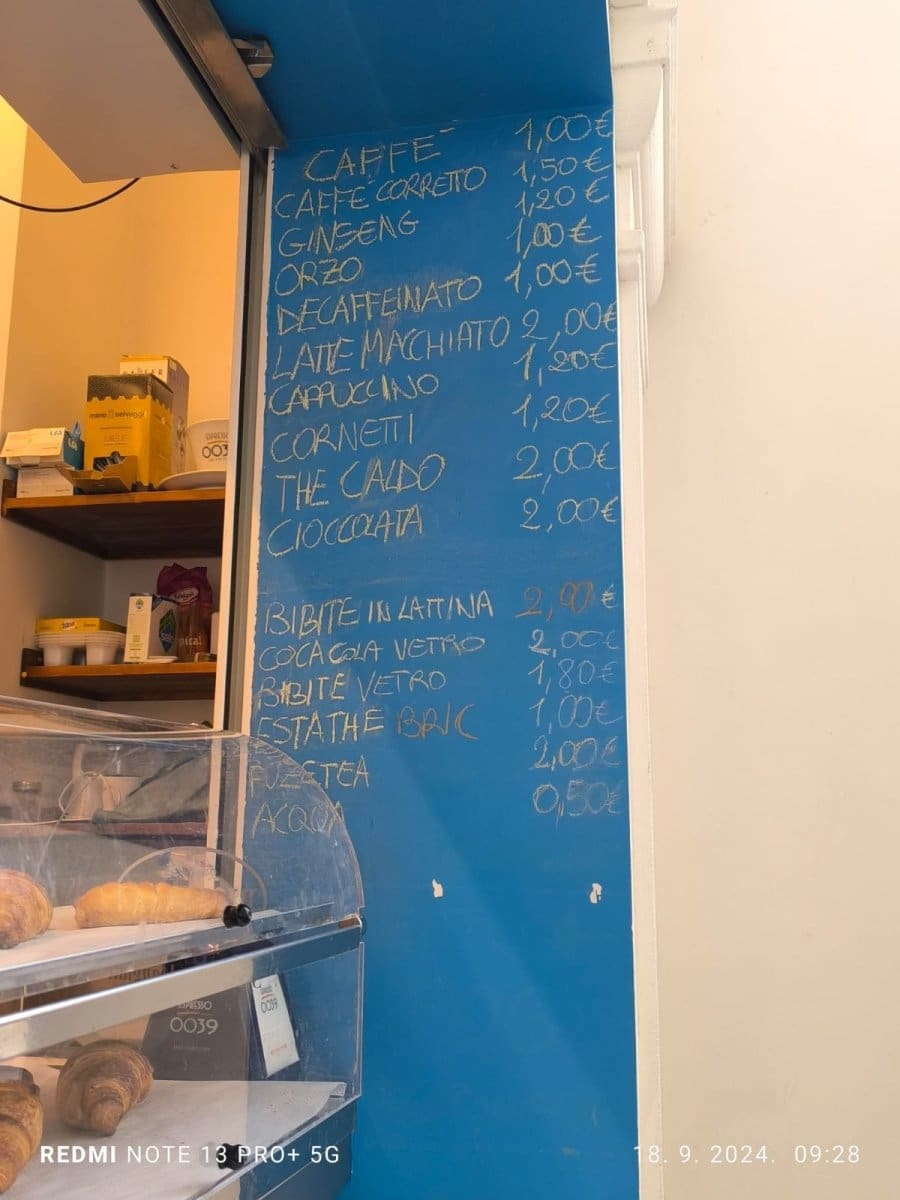 CAFFÈ 1,00€
CAFFÈ CORRETTO 1,50€
GINSENG 1,20€
ORZO 1,00€
DECAFFEINATO 1,00€
LATTE MACCHIATO 2,00€
CAPPUCCINO 1,20€
CORNETTI 1,20€
THE CALDO 2,00€
CIOCCOLATA 2,00€
BIBITE IN LATTINA 2,00€
COCA COLA VETRO 2,00€
BIBITE VETRO 1,80€
ESTATHE BRIC 1,00€
FUZETEA 2,00€
ACQUA 0,50€
selvaggi
ESPRESSO
0039
0039
0039
REDMI NOTE 13 PRO+ 5G
18. 9. 2024. 09:28